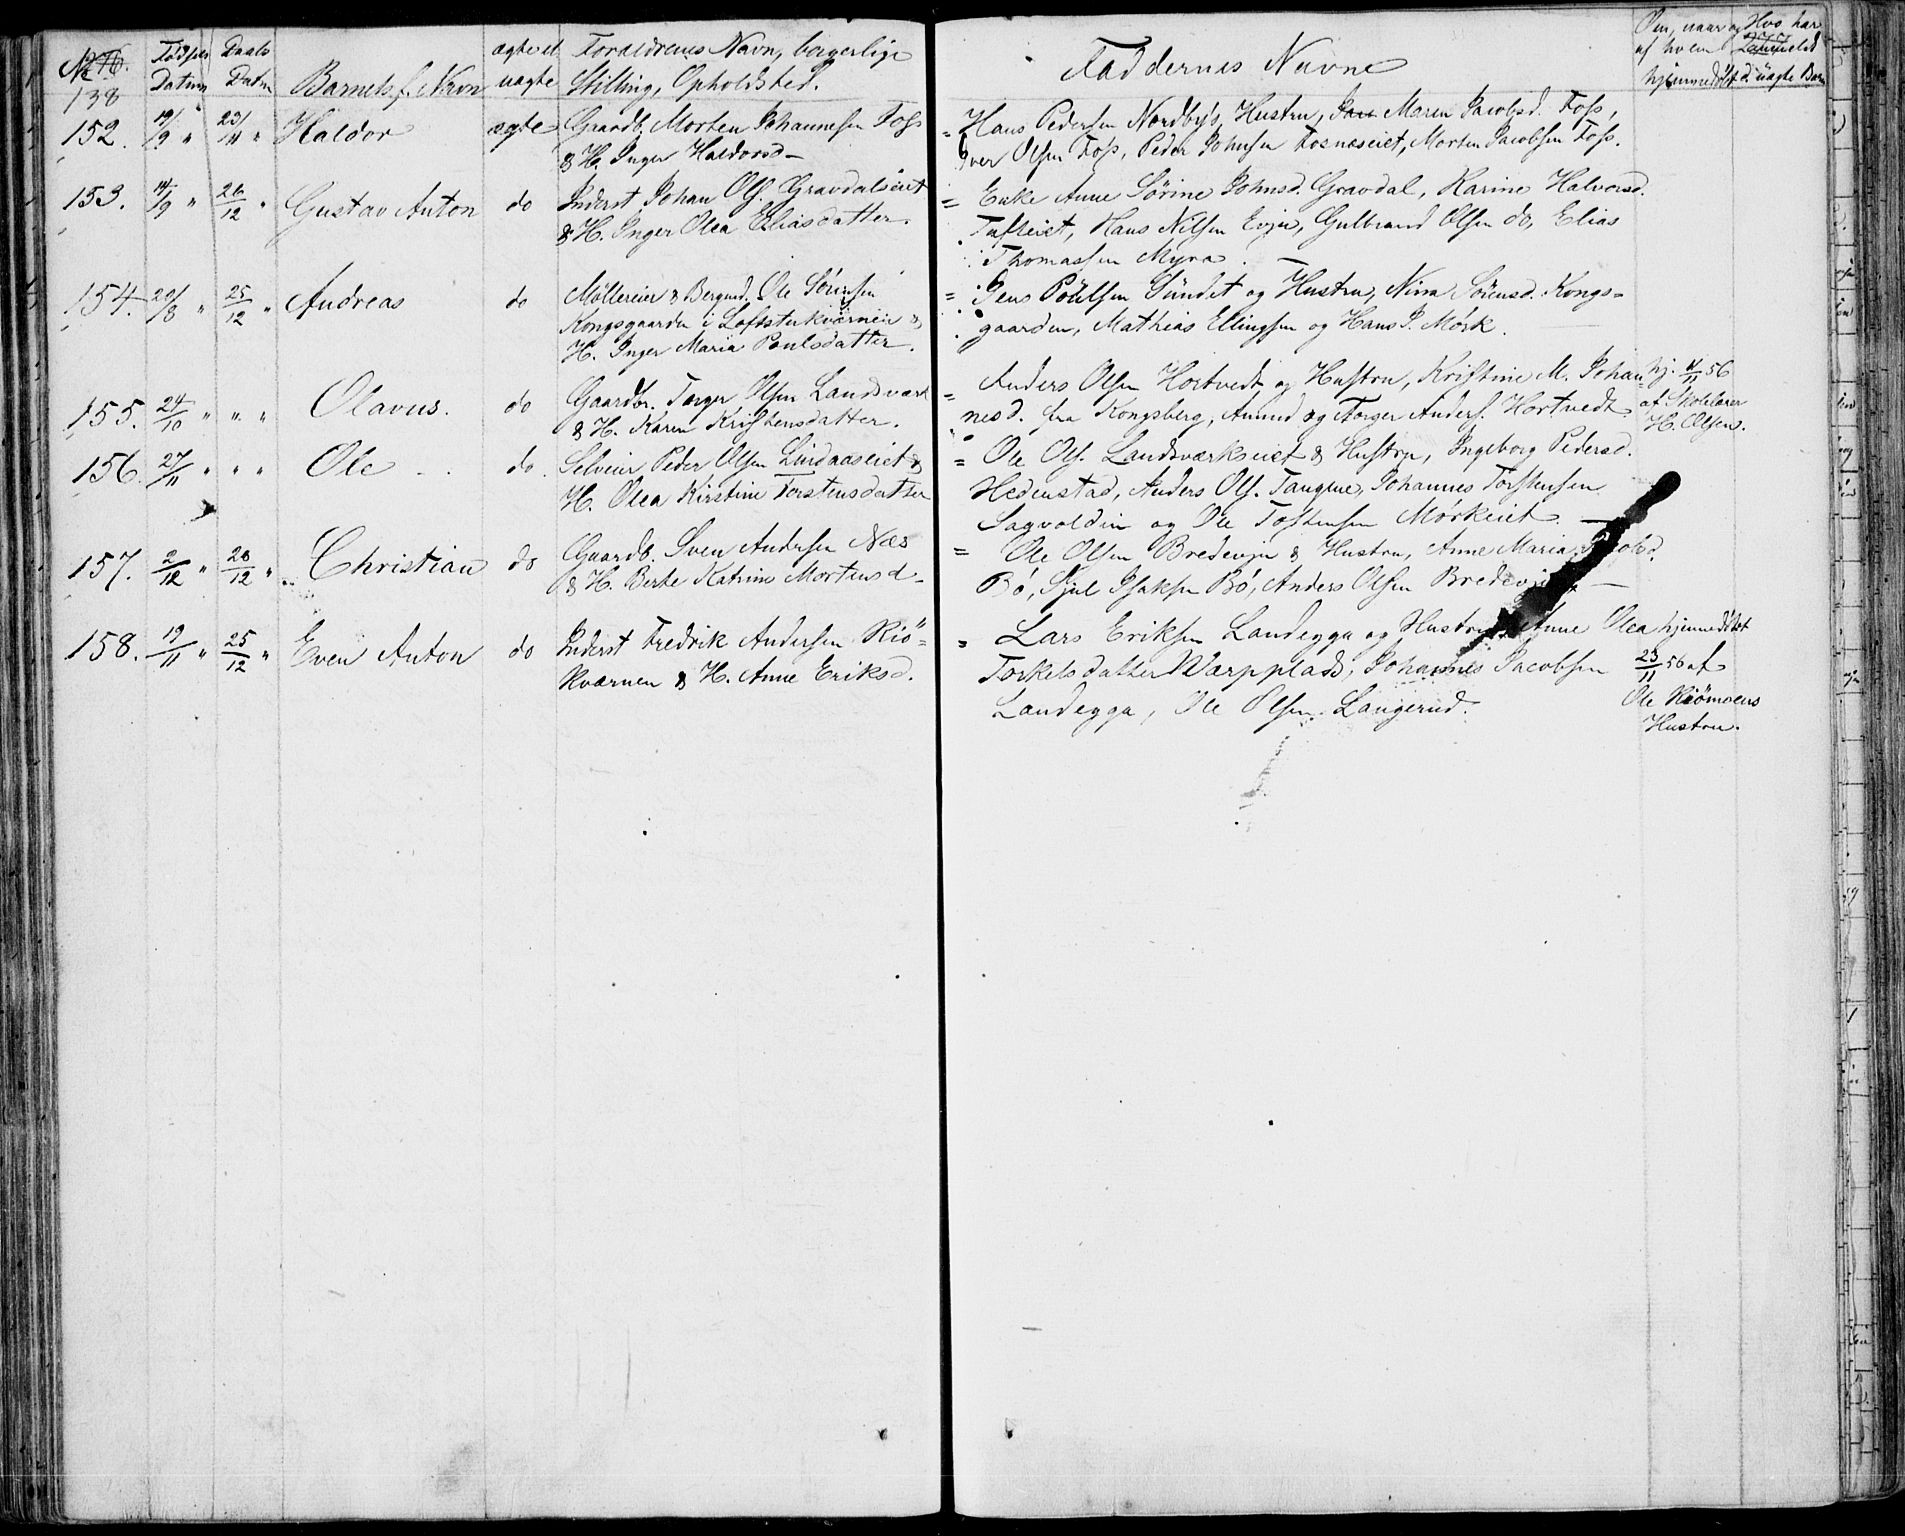 No 276.
138
Fødsels Datum
Daabs Datum
Barnets f. Navn
ægte el. uægte
Forældrenes Navn, borgerlige
Stilling, Opholdsted.
Faddernes Navne
Om, naar og af hvem hjemmedøbt
Hvo har d. uægte Barn
152. 19/9 " 23/11 " Haldor ægte Gaardb. Morten Johannesen Foss
& H. Inger Haldorsd.
= Hans Pedersen Nordby's Hustru, Maren Jacobsd. Foss,
Iver Olsen Foss, Peder Johnsen Fosnæseiet, Morten Jacobsen Foss.
153. 14/9 " 26/12 " Gustav Anton do Inderst Johan Ols. Gravdalseiet
& H. Inger Olea Eliasdatter.
= Enke Anne Sørine Johnsd. Gravdal, Karine Halvorsd.
Tufteiet, Hans Nilsen Evju, Gulbrand Olsen do, Elias
Thomassen Myra.
154. 20/8 " 25/12 " Andreas do Møllereier & Bergmd. Ole Sörensen
Kongsgaarden i Loftsterkværnen &
H. Inger Maria Poulsdatter.
= Jens Poulsen Sundet og Hustru, Nina Sörensd. Kongs=
gaarden, Mathias Ellingsen og Hans P. Mørk.
155. 24/10 " " " Olavus. do Gaardbr. Torger Olsen Landsværk
& H. Karen Kristensdatter.
= Anders Olsen Hortvedt og Hustru, Kristine M. Johan=
nesd. fra Kongsberg, Amund og Torger Anders. Hortvedt.
hj. 11/11 56
af Skolelærer
H. Olsen.
156. 27/11 " " " Ole do. Selveier Peder Olsen Lindaaseiet &
H. Olea Kirstine Torstensdatter
= Ole Ols. Landsværkseiet & Hustru, Ingeborg Pedersd.
Hedenstad, Anders Ols. Tangene, Johannes Torstensen
Sagvolden og Ole Tostensen Mørkeiet.
157. 2/12 " 26/12 " Christian do Gaardb. Sven Andersen Næs
& H. Berte Katrine Mortensd.
= Ole Olsen Bredevju & Hustru, Anne Maria
Bö, Sjul Isaksen Bö, Anders Olsen
158. 19/11 " 25/12 " Even Anton do Inderst Fredrik Andersen Kiö=
kværnen & H. Anne Eriksd.
= Lars Eriksen Landegga og Hustru, Anne Olea
Torkelsdatter Warpplads, Johannes Jacobsen
Landegga, Ole Olsen Langerud.
hjemmedöbt
23/11 56 af
Ole Kiömoens
Hustru.